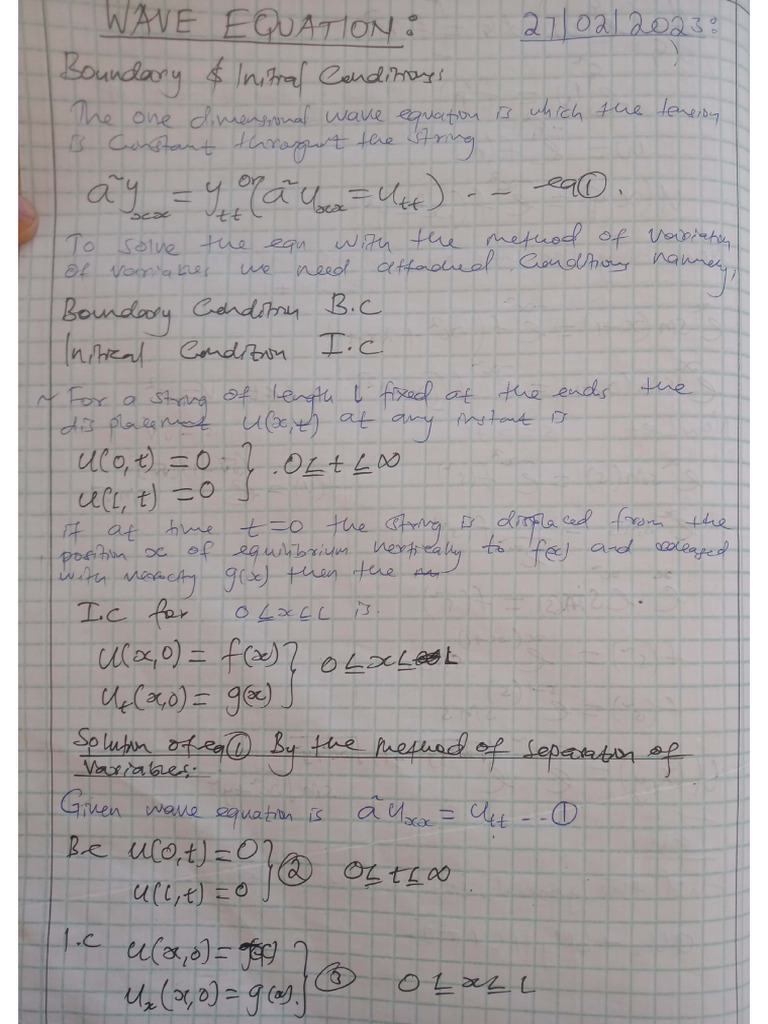 WAVE EQUATION: 27/02/2023:
Boundary & Initial Conditions:
The one dimensional wave equation is which the tension
is constant througout the string
a²y_xx = y_tt or (a²u_xx = u_tt) -- eq①.
To solve the eqn with the method of variation
of variables we need attached Conditions namely,
Boundary Condition B.C
Initial Condition I.C
~ For a string of length L fixed at the ends the
displacement u(x,t) at any instant is
u(0,t) = 0 } 0≤t≤∞
u(L,t) = 0
if at time t=0 the string is displaced from the
position x of equilibrium vertically to f(x) and released
with velocity g(x) then the
I.C for 0≤x≤L is.
u(x,0) = f(x) } 0≤x≤L
u_t(x,0) = g(x)
Solution of eq① By the method of separation of
Variables:
Given wave equation is a²u_xx = u_tt --①
B.C u(0,t) = 0 } ② 0≤t≤∞
u(L,t) = 0
I.C u(x,0) = f(x) } ③ 0≤x≤L
u_x(x,0) = g(x).